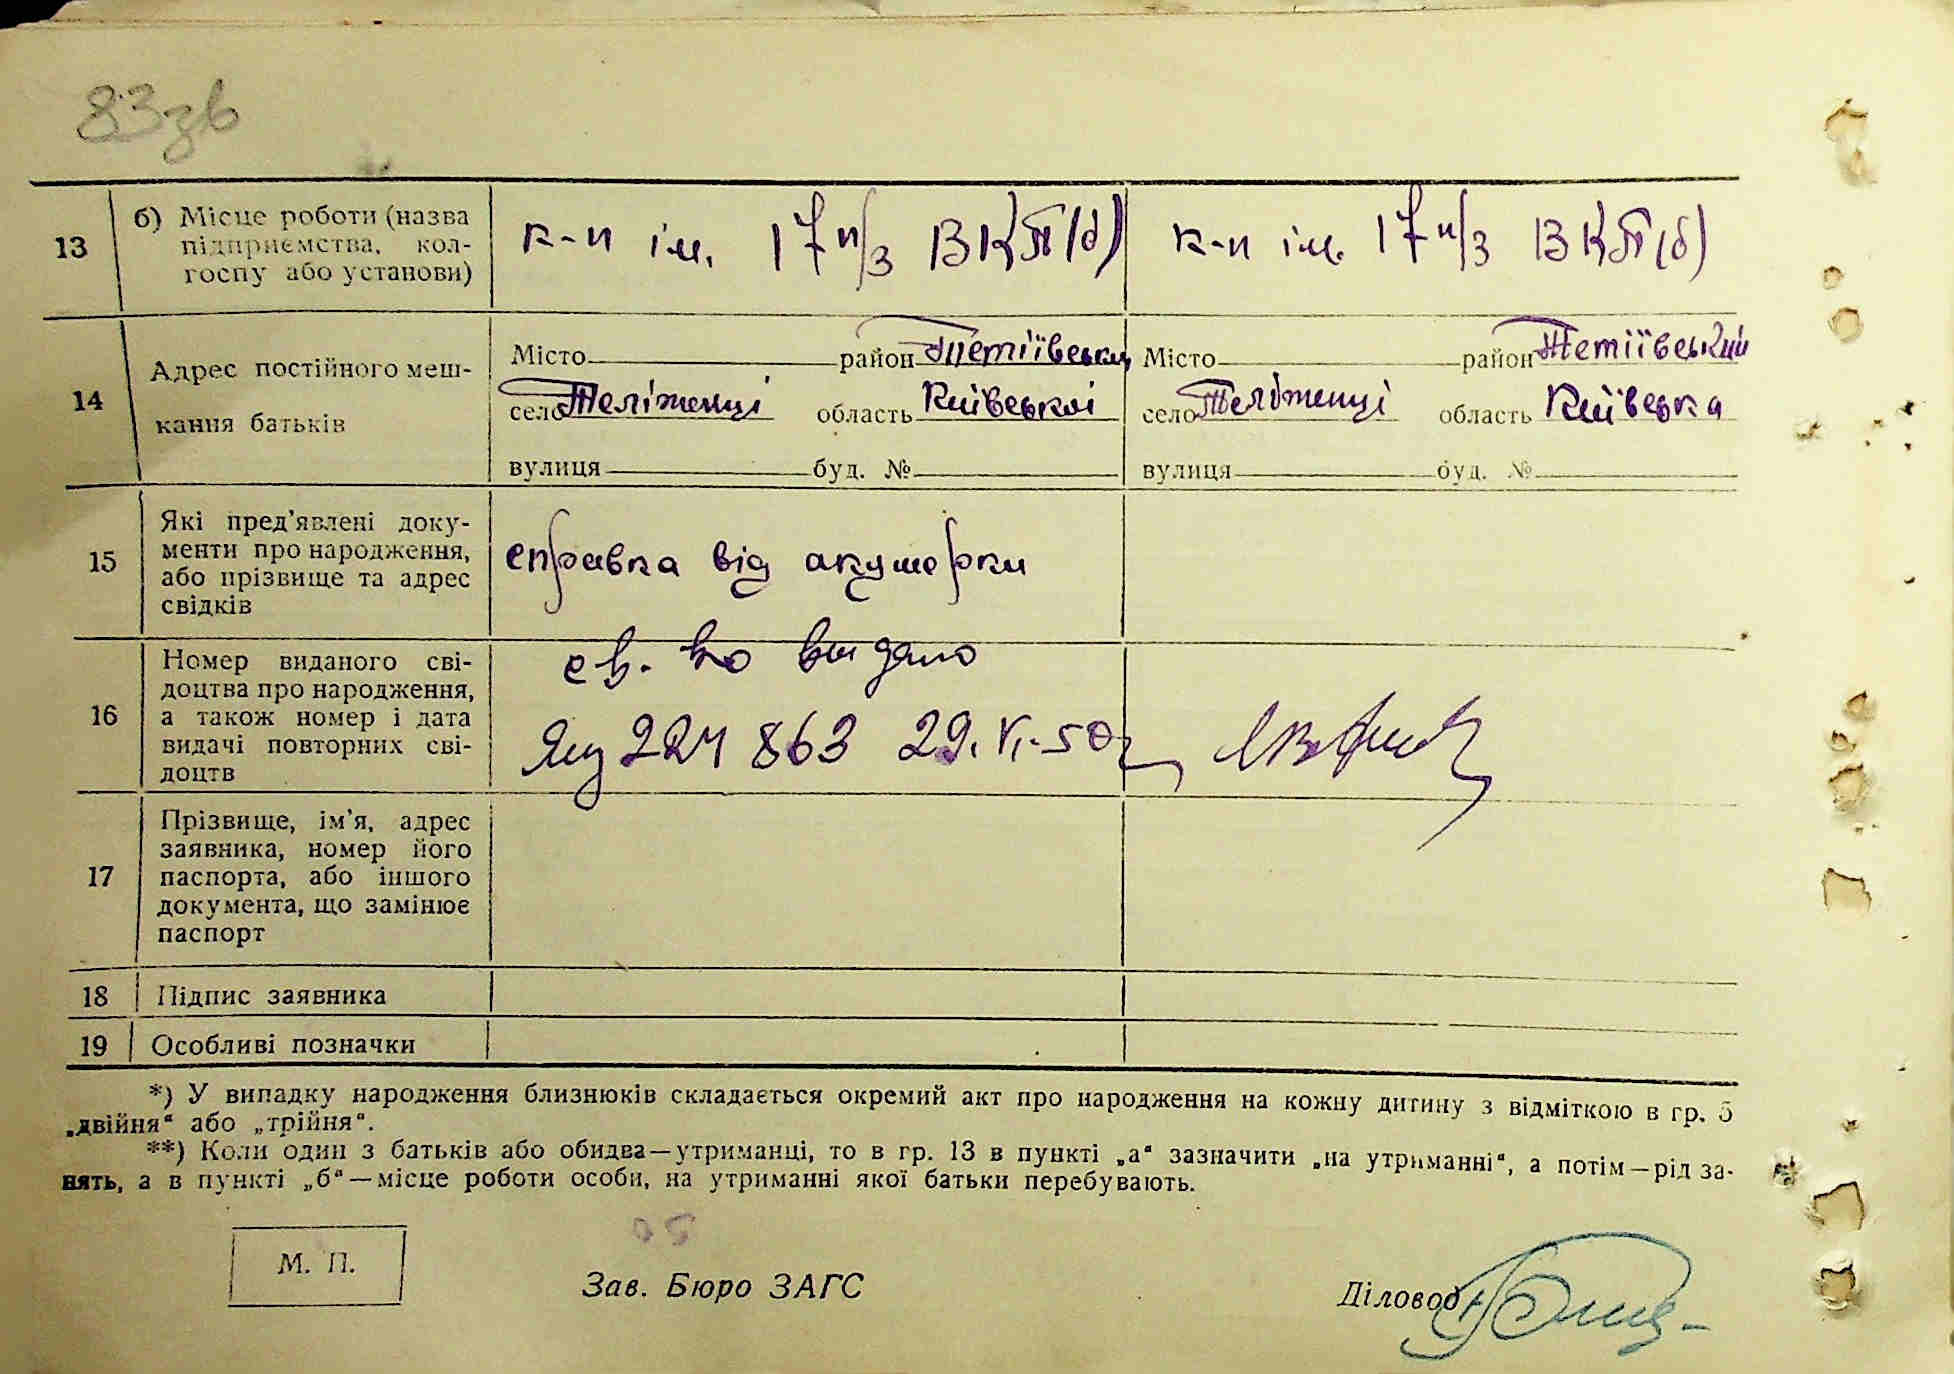 83зв
13 б) Місце роботи (назва підприємства, колгоспу або установи) к-п ім. 17 п/з ВКП(б) к-п ім. 17 п/з ВКП(б)
14 Адрес постійного меш-
кання батьків
Місто район Тетіївський Місто район Тетіївський
село Теліженці область Київської село Теліженці область Київська
вулиця буд. № вулиця буд. №
15 Які пред'явлені доку-
менти про народження,
або прізвище та адрес
свідків
справка від акушерки
16 Номер виданого сві-
доцтва про народження,
а також номер і дата
видачі повторних сві-
доцтв
св. во выдано
224 863 29. VI-50
17 Прізвище, ім'я, адрес
заявника, номер його
паспорта, або іншого
документа, що замінює
паспорт
18 Підпис заявника
19 Особливі позначки
*) У випадку народження близнюків складається окремий акт про народження на кожну дитину з відміткою в гр. 5
„двійня“ або „трійня“.
**) Коли один з батьків або обидва—утриманці, то в гр. 13 в пункті „а“ зазначити „на утриманні“, а потім—рід за-
нять, а в пункті „б“—місце роботи особи, на утриманні якої батьки перебувають.
М. П.
Зав. Бюро ЗАГС Діловод